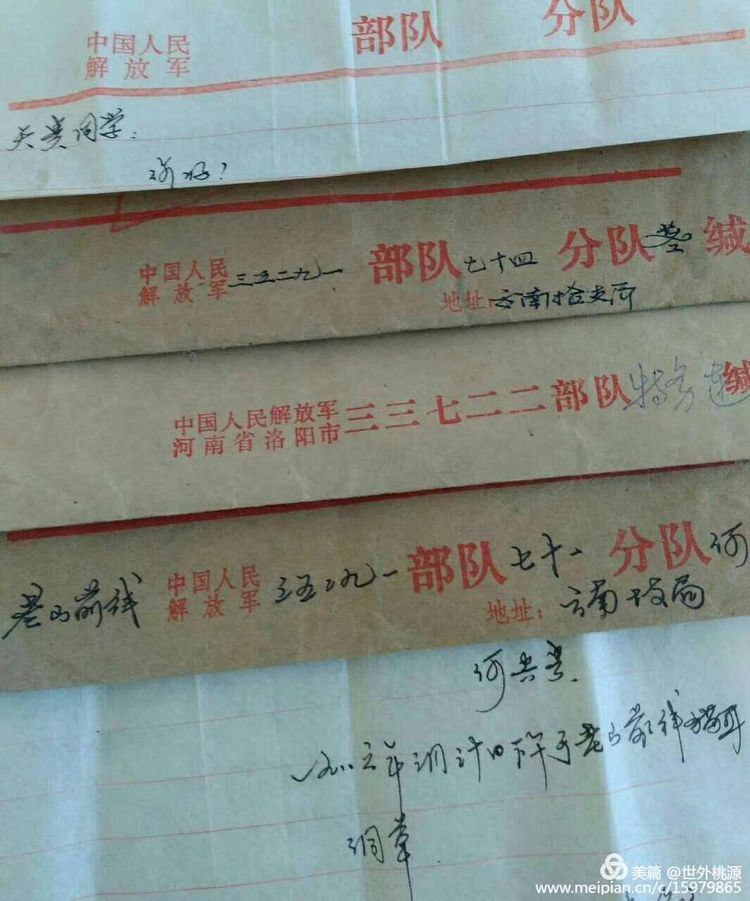 中国人民
解放军 部队 分队
同学:
你好?
中国人民
解放军 三五二九一 部队 七十四 分队 缄
地址: 云南
中国人民解放军
河南省洛阳市 三三七二二部队 特务连 缄
老山前线 中国人民
解放军 三五二九一 部队 七十一 分队 何
地址: 云南
何
年 日下午于老山前线猫耳
洞草
美篇 @世外桃源
www.meipian.cn/c/15979865